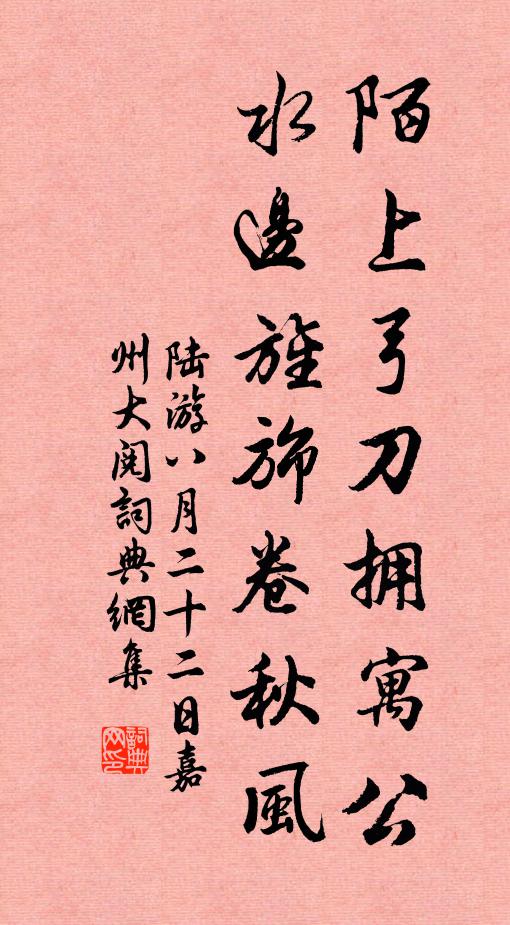 陌上弓刀拥寓公
水邊旌旆卷秋風
陆游八月二十二日嘉
州大阅詞典網集
詞典网印